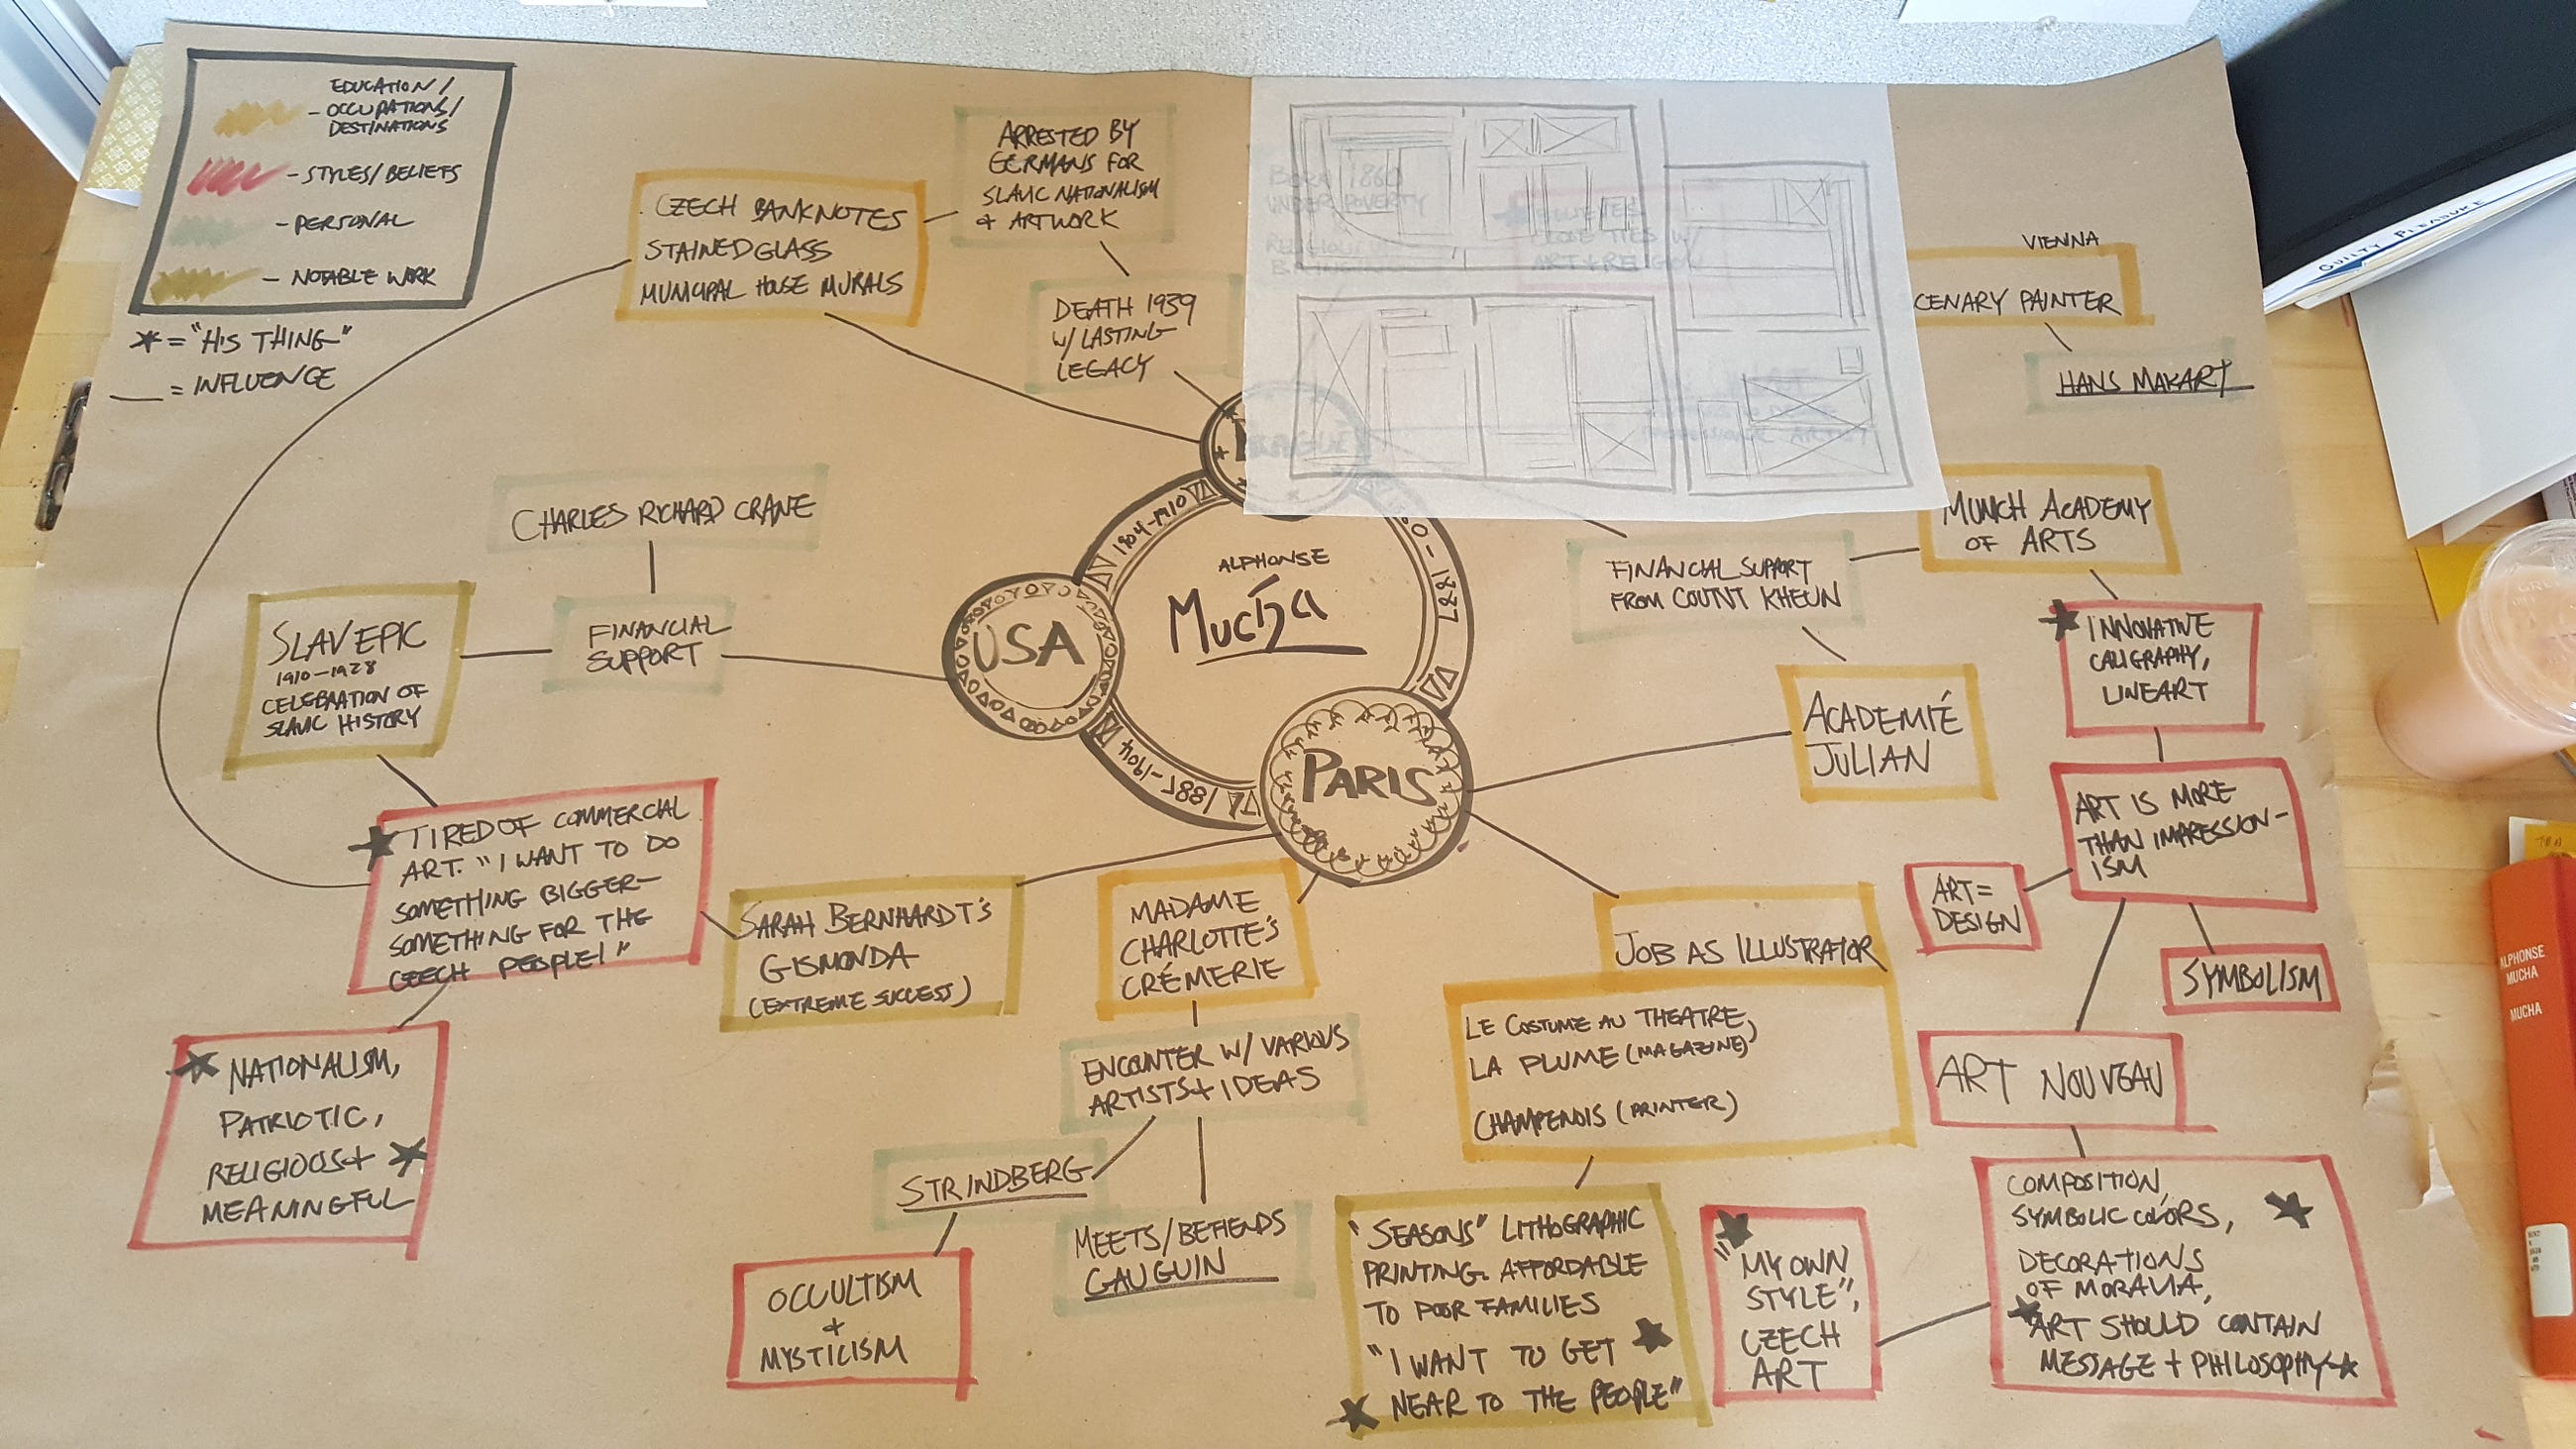 EDUCATION/
- OCCUPATIONS/
DESTINATIONS
- STYLES/BELIEFS
- PERSONAL
- NOTABLE WORK
* = "HIS THING"
__ = INFLUENCE
CZECH BANKNOTES
STAINED GLASS
MUNICIPAL HOUSE MURALS
ARRESTED BY
GERMANS FOR
SLAVIC NATIONALISM
& ARTWORK
DEATH 1939
W/ LASTING
LEGACY
BORN 1860
UNDER POVERTY
ART + RELIGION
VIENNA
CENARY PAINTER
HANS MAKART
CHARLES RICHARD CRANE
FINANCIAL
SUPPORT
SLAV EPIC
1910-1928
CELEBRATION OF
SLAVIC HISTORY
1904-1910
0-1887
1887-1904
ALPHONSE
Mucha
USA
PARIS
FINANCIAL SUPPORT
FROM COUNT KHEUN
MUNICH ACADEMY
OF ARTS
INNOVATIVE
CALIGRAPHY,
LINEART
ACADEMIÉ
JULIAN
ART IS MORE
THAN IMPRESSION-
ISM
ART =
DESIGN
SYMBOLISM
ART NOUVEAU
COMPOSITION,
SYMBOLIC COLORS,
DECORATIONS
OF MORAVIA,
ART SHOULD CONTAIN
MESSAGE + PHILOSOPHY
"MY OWN
STYLE",
CZECH
ART
TIRED OF COMMERCIAL
ART. "I WANT TO DO
SOMETHING BIGGER-
SOMETHING FOR THE
CZECH PEOPLE!"
NATIONALISM,
PATRIOTIC,
RELIGIOUS +
MEANINGFUL
SARAH BERNHARDT'S
GISMONDA
(EXTREME SUCCESS)
MADAME
CHARLOTTE'S
CRÉMERIE
ENCOUNTER W/ VARIOUS
ARTISTS + IDEAS
STRINDBERG
OCCULTISM
+
MYSTICISM
MEETS/BEFIENDS
GAUGUIN
JOB AS ILLUSTRATOR
LE COSTUME AU THEATRE,
LA PLUME (MAGAZINE)
CHAMPENOIS (PRINTER)
"SEASONS" LITHOGRAPHIC
PRINTING. AFFORDABLE
TO POOR FAMILIES
"I WANT TO GET
NEAR TO THE PEOPLE"
GUILTY PLEASURE
ALPHONSE
MUCHA
MUCHA